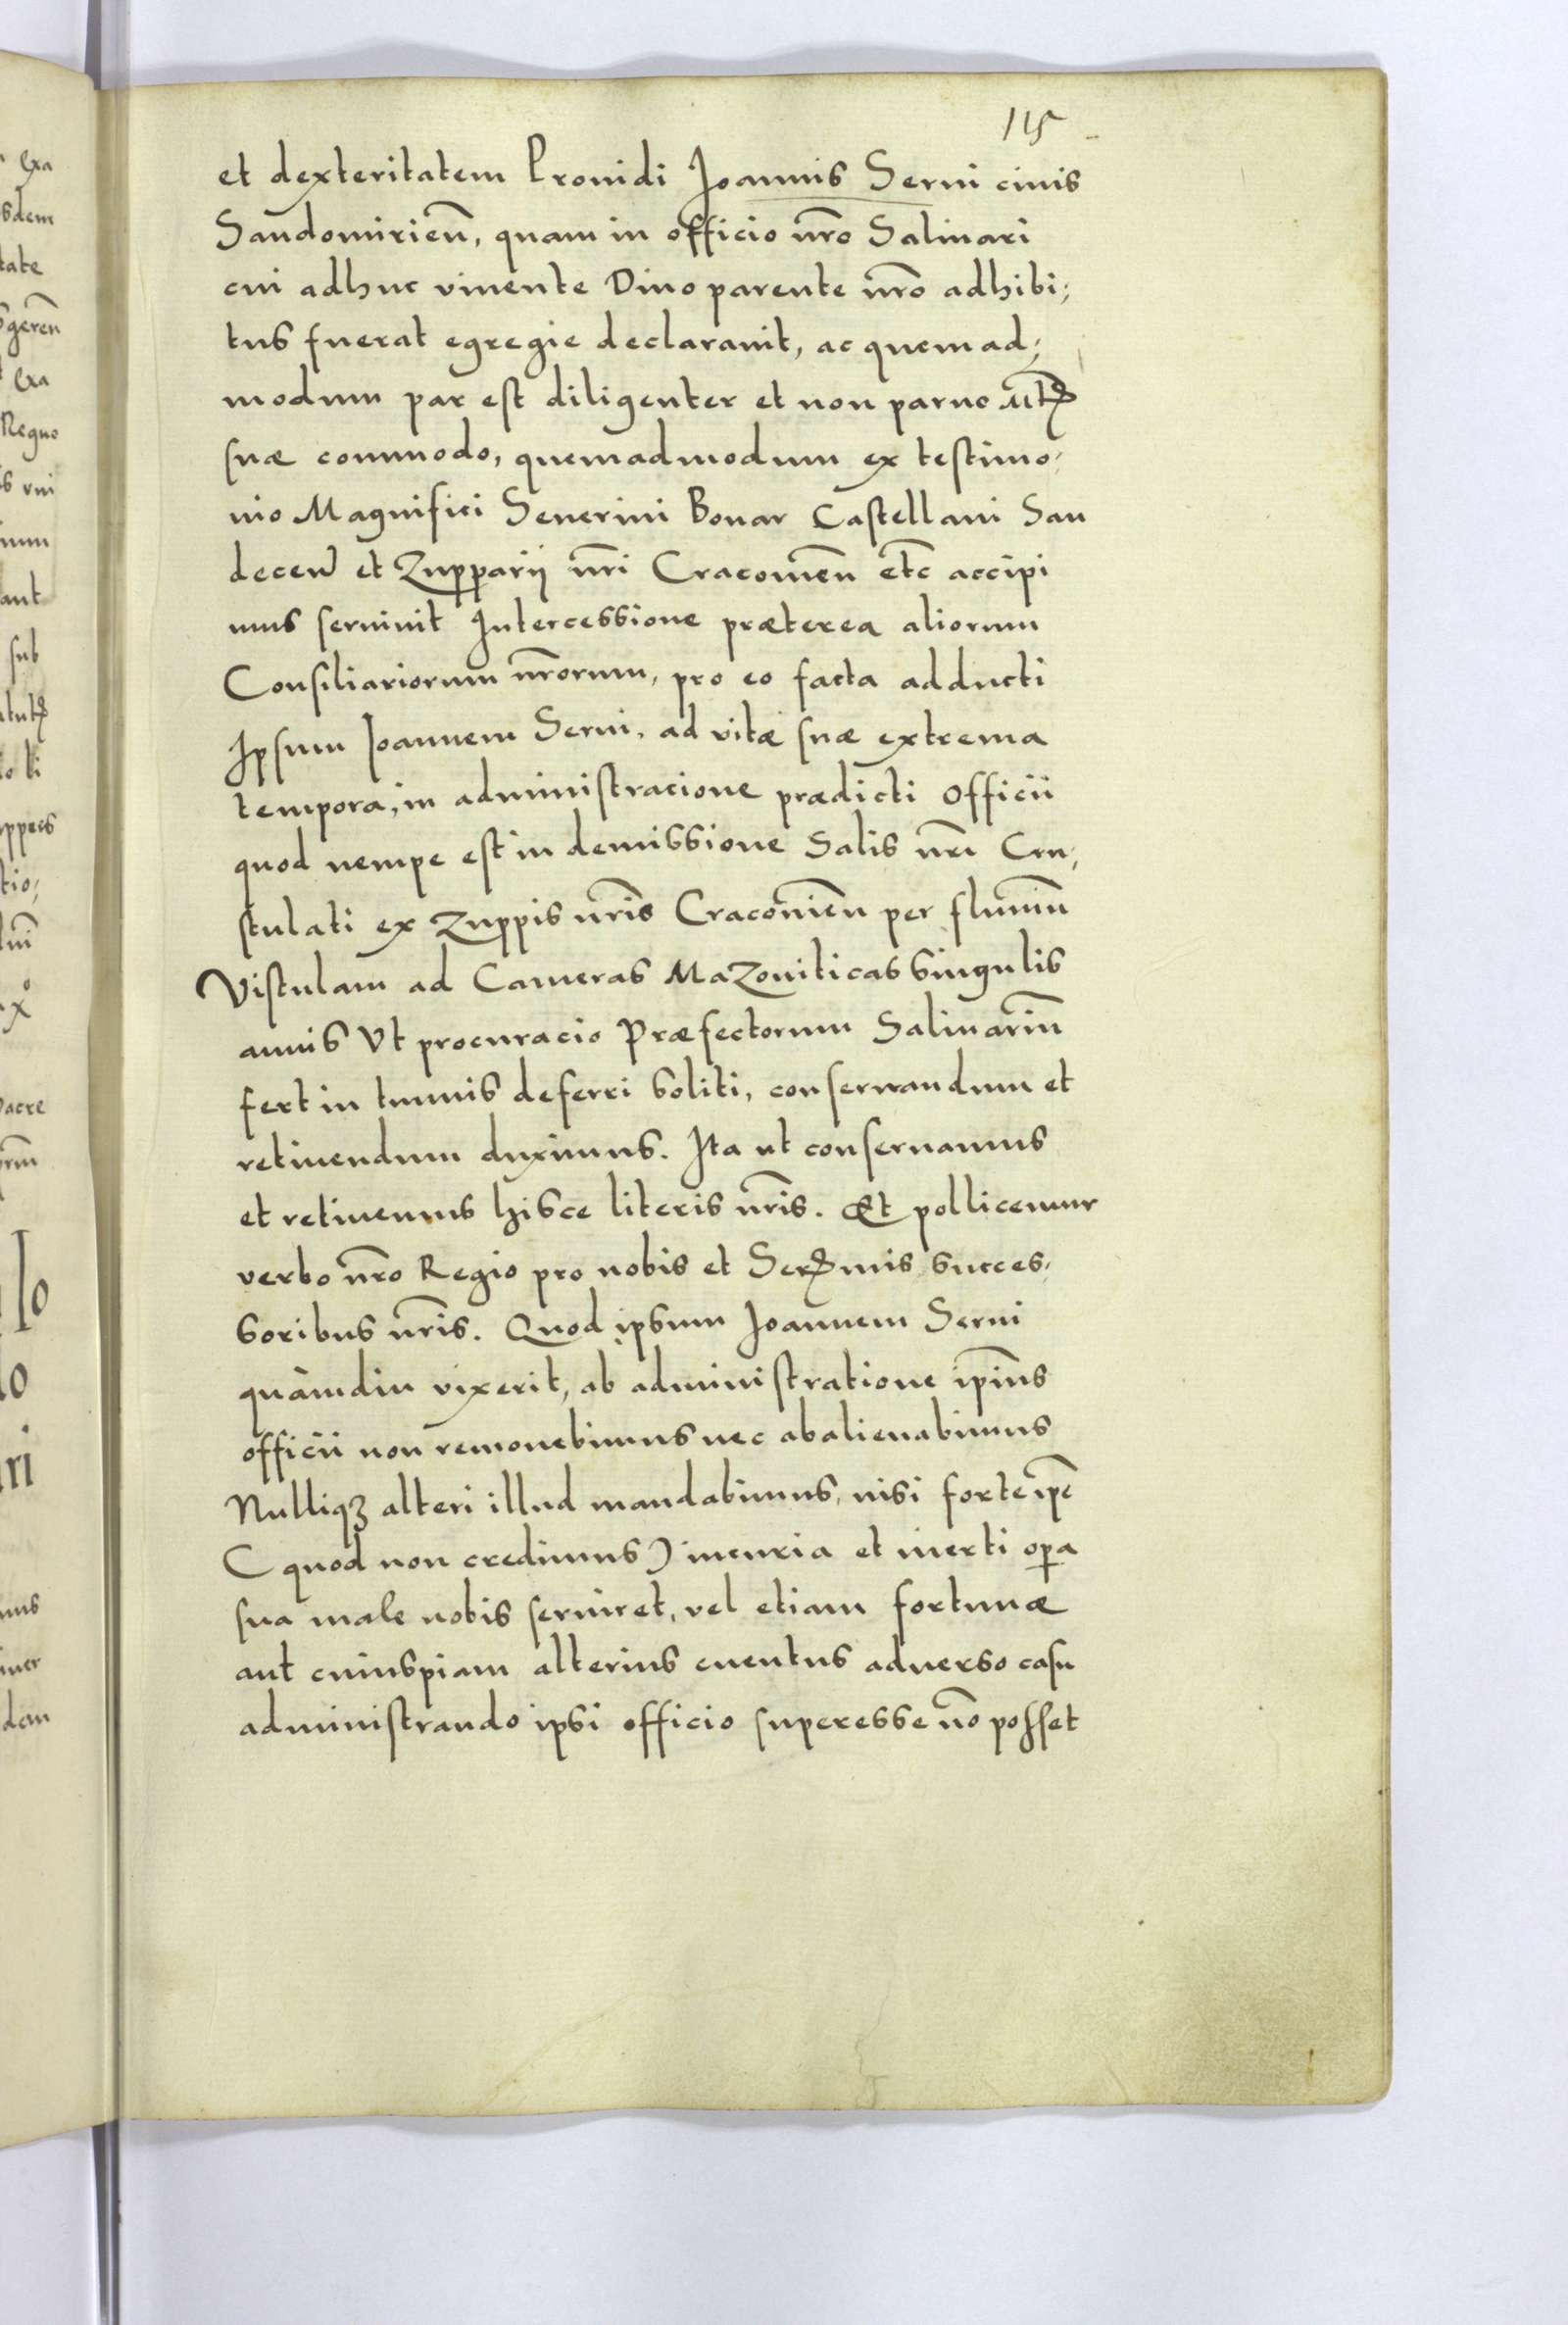 115
et dexteritatem Prouidi Joannis Serni ciuis
Sandomirien̄, quam in officio nr̄o Salinari
cui adhuc viuente Diuo parente nr̄o adhibi;
tus fuerat egregie declarauit, ac quemad;
modum par est diligenter et non paruo
suæ commodo, quemadmodum ex testimo-
nio Magnifici Seuerini Bonar Castellani San
decen̄ et Zupparij nr̄i Cracouien̄ etc̄ accipi
mus seruiuit Intercessione præterea aliorum
Consiliariorum nr̄orum, pro eo facta adducti
Ipsum Joannem Serni, ad vitæ suæ extrema
tempora, in administracione prædicti Officii
quod nempe est in demissione Salis nr̄i Cru;
stulati ex Zuppis nr̄is Cracouien̄ per fluuiū
Vistulam ad Cameras Mazouiticas singulis
annis Vt procuracio Præfectorum Salinariū
fert in tunnis deferri soliti, conseruandum et
retinendum duximus. Ita ut conseruamus
et retinemus hisce literis nr̄is. Et pollicemur
verbo nr̄o Regio pro nobis et Ser͞mis succes-
soribus nr̄is. Quod ipsum Joannem Serni
quamdiu vixerit, ab administratione ip̄ius
officii non remouebimus nec abalienabimus
Nulliqꝫ alteri illud mandabimus, nisi forte ip̄e
(quod non credimus) incuria et inerti opera
sua male nobis seruiret, vel etiam fortunæ
aut cuiuspiam alterius euentus aduerso casu
administrando ipsi officio superesse nō posset